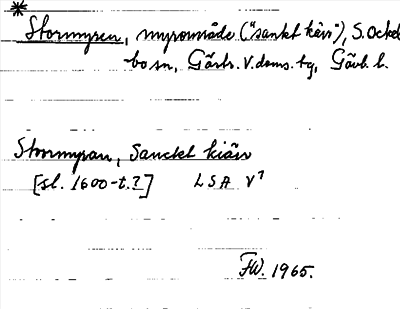 Stormyren, myrområde ("sankt kärr"), S. Ockel-
bo sn, Gästr. V. doms. tg, Gävb. l.
Stormyran, Sanckt kiärr
[sl. 1600-t.?] LSA V⁷
FW. 1965.